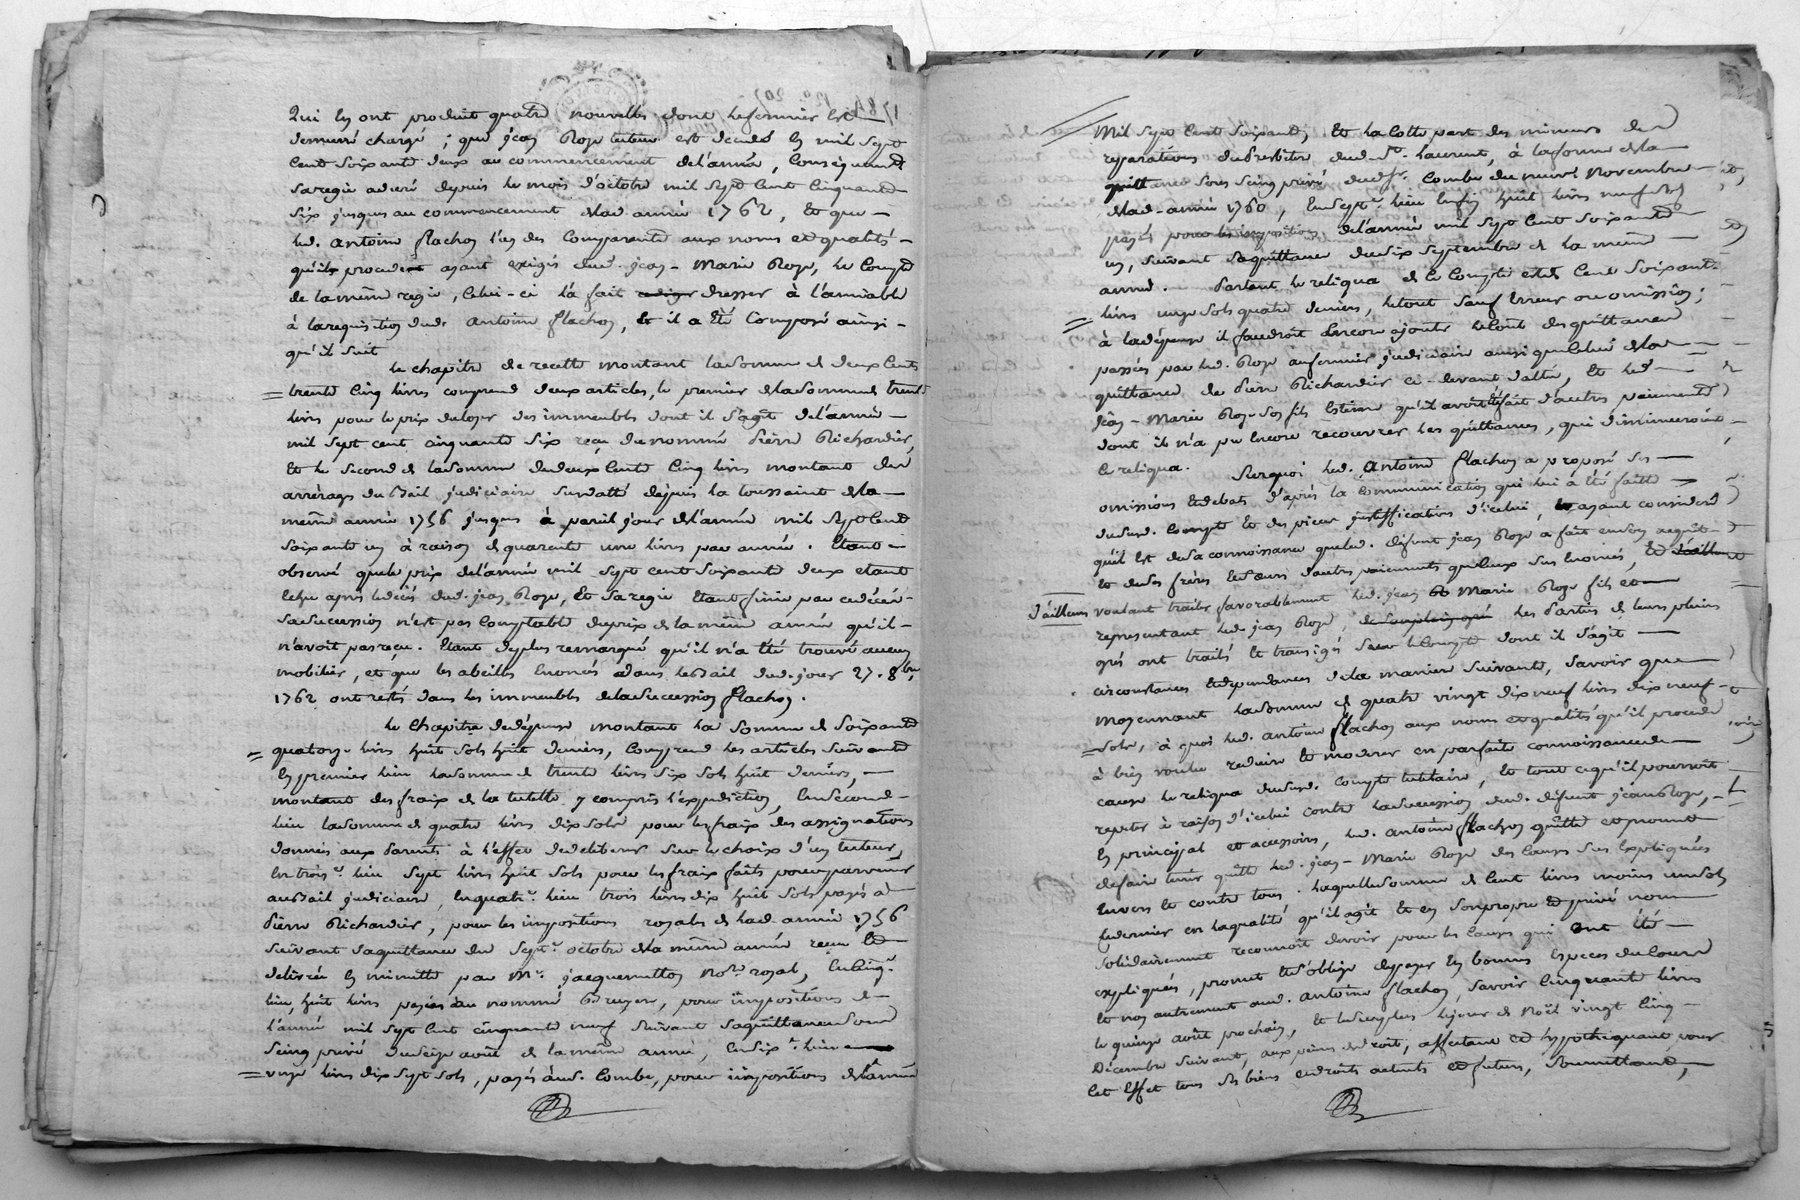 Qui en ont produit quatre nouvelles dont le fermier est
demeuré chargé ; que jean Roze tuteur est decedé en mil sept
cent soixante deux au commencement de l'année, consequent
sa regie a duré depuis le mois d'octobre mil sept cent cinquante
six jusques au commencement de lad année 1762, et que
led. antoine flachon l'un des comparants aux noms et qualités
qu'ils procedent ayant exigés dud. jean-Marie Roze, le compte
de la même regie, celui-ci l'a fait dresser à l'amiable
à la requisition dud. antoine flachon, et il a été composé ainsi
qu'il suit
le chapitre de recette montant la somme de deux cents
trente cinq livres comprend deux articles, le premier de la somme de trente
livres pour le prix du loyer des immeubles dont il s'agit de l'année
mil sept cent cinquante six reçu du nommé pierre Richardier,
Et le second de la somme de deux cents cinq livres montant des
arrerages du Bail judiciaire susdatté depuis la toussaint de la
même année 1756 jusques à pareil jour de l'année mil sept cent
soixante un à raison de quarente une livres par année. Etant
observé que le prix de l'année mil sept cent soixante deux etant
echu après le décès dud. jean Roze, et sa regie etant finie par ce décès
sa succession n'est pas comptable du prix de la même année qu'il
n'avoit pas reçu. Etant de plus remarqué qu'il n'a été trouvé aucun
mobilier, et que les abeilles enoncés dans le Bail dud. jour 27. 8bre
1762 ont restés dans les immeubles de la succession flachon.
le chapitre de dépense montant la somme de soixante
quatorze livres huit sols huit deniers, comprend les articles suivants
En premier lieu la somme de trente livres six sols huit deniers,
montant des fraix de la tutelle y compris l'expedition, En second
lieu la somme de quatre livres dix sols pour les fraix des assignations
donnés aux parents à l'effet de deliberer sur le choix d'un tuteur,
En trois.e lieu sept livres huit sols pour les fraix faits pour parvenir
au Bail judiciaire, En quatr.e lieu trois livres dix huit sols payés à
pierre Richardier, pour les impositions royales de lad. année 1756
suivant sa quittance du sept.e octobre de la même année reçue et
delivrée en minutte par M.e jacquemetton No.re royal, En cinq.e
lieu huit livres payés au nommé Bruyere, pour impositions de
l'année mil sept cent cinquante neuf suivant sa quittance sous
seing privé du seize août de la même année, En six.e lieu
onze livres dix sept sols, payés aud. Combe, pour impositions de l'année
Mil sept cent soixante, Et la cotte part des mineurs des
reparations du presbitere dud. St. Laurent, à la forme de la
quittance sous seing privé dud. Sr. Combe du neuf Novembre
de lad. année 1760, En sept.e lieu Enfin huit livres neuf sols
payés pour les impositions de l'année mil sept cent soixante
un, suivant sa quittance du six septembre de la même
année. Partant le reliqua de ce compte est de Cent soixante
livres onze sols quatre deniers, le tout sauf erreur ou omission ;
à la dépense il faudroit Encore ajouter le coût des quittances
passées par led. Roze au fermier judiciaire ainsi que celui de la
quittance de pierre Richardier ci-devant datée, Et led.
jean-Marie Roze son fils Estime qu'il avoit fait d'autres paiements
dont il n'a pu Encore recouvrer les quittances, qui diminueroient
ce reliqua. Surquoi led. Antoine flachon a proposé ses
omissions et debats d'après la communication qui lui a été faitte
dusd. compte et des pieces justifficatives d'icelui, ayant consideré
qu'il est de sa connoissance que led. defunt jean Roze a fait
et de ses freres et sœurs d'autres paiements que ceux sus enoncés, Et
d'ailleurs voulant traiter favorablement led. jean Marie Roze fils et
representant led. jean Roze, les parties de leurs pleins
grés ont traités et transigés sur le compte dont il s'agit
circonstances et dependances de la maniere suivante, savoir que
moyennant la somme de quatre vingt dix neuf livres dix neuf
sols, à quoi led. antoine flachon aux noms et qualités qu'il procede
à bien voulu reduire et moderer en parfaite connoissance de
cause le reliqua dusd. compte tutelaire, Et tout ce qu'il pourroit
repeter à raison d'icelui contre la succession dud. défunt jean Roze,
En principal et accessoires, led. Antoine flachon quitte et promet
de faire tenir quitte led. jean-Marie Roze des causes sus expliquées
Envers et contre tous. laquelle somme de cent livres moins un sol
ce dernier en la qualité qu'il agit et en son propre et privé nom
solidairement reconnoît devoir pour les causes qui ont été
expliqués, promet et s'oblige de payer en bonnes especes de cours
et non autrement aud. antoine flachon, savoir cinquante livres
le quinze août prochain, et le surplus le jour de Noël vingt cinq
Décembre suivant, aux peines de droit, affectant et hypothequant pour
cet effet tous ses biens et droits actuels et futurs, soumettant,